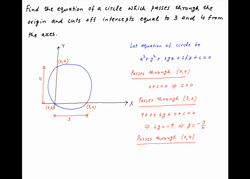 Find the equation of a circle which passes through the
origin and cuts off intercepts equal to 3 and 4 from
the axes.
Y
(0,4)
4
(0,0)
(3,0)
X
3
Let equation of circle be
x²+y²+2gx+2fy+c=0
Passes through (0,0)
0+c=0 ⇒ c=0
Passes through (3,0)
9+0+6g+0+0=0
⇒ 6g=-9 ⇒ g=-3/2
Passes through (0,4)